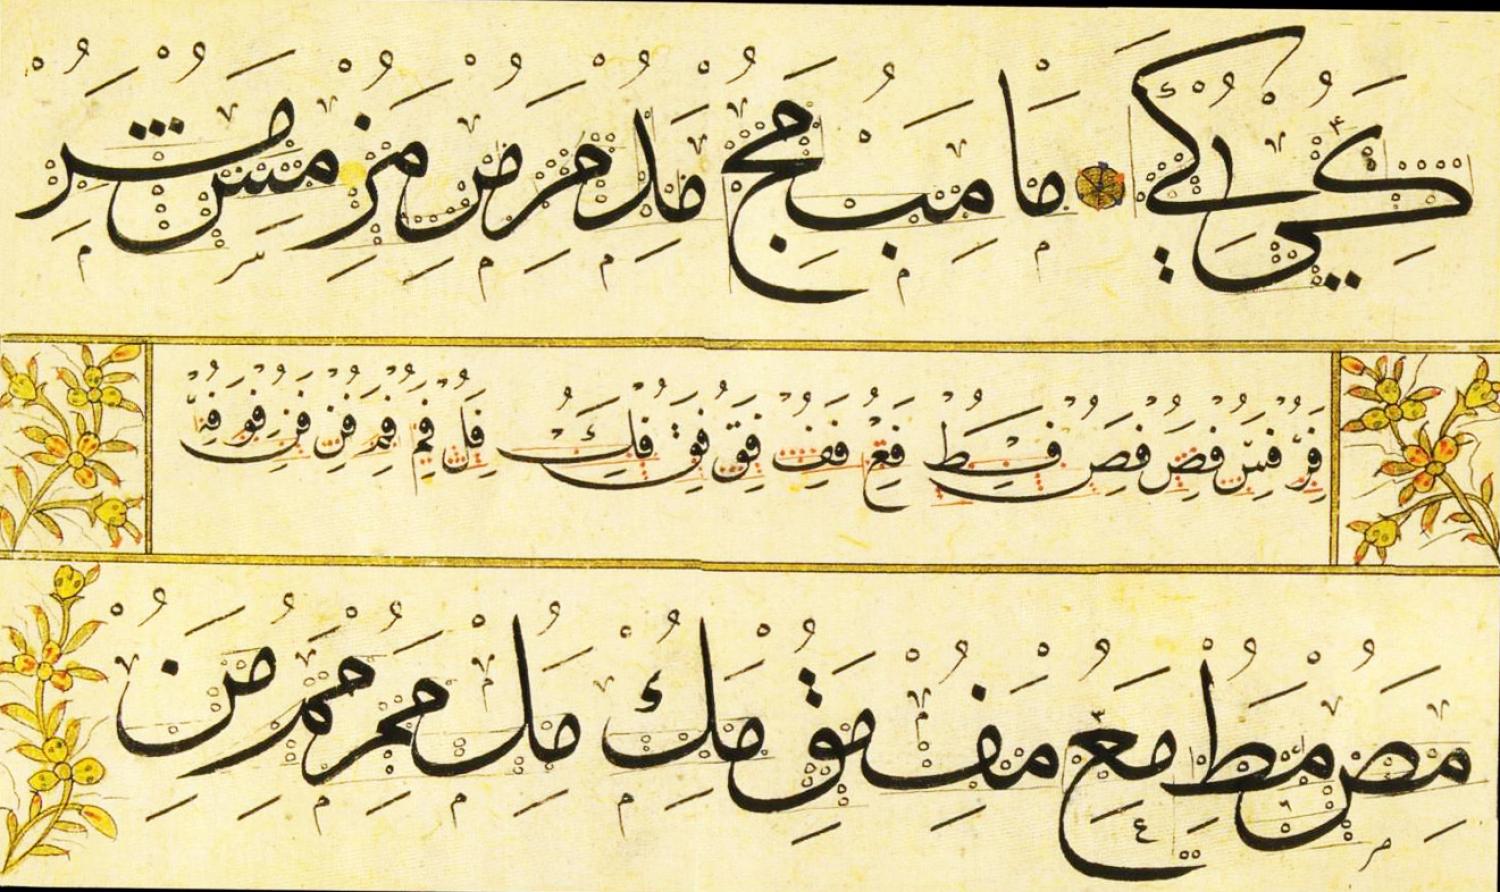 كي كي ما مب مج مد مر مر مز مس مشر
فر فس فص فص فط فع فف فق فق فك فل فم فم فن فن فو
مص مط مع مف مق مك مل من